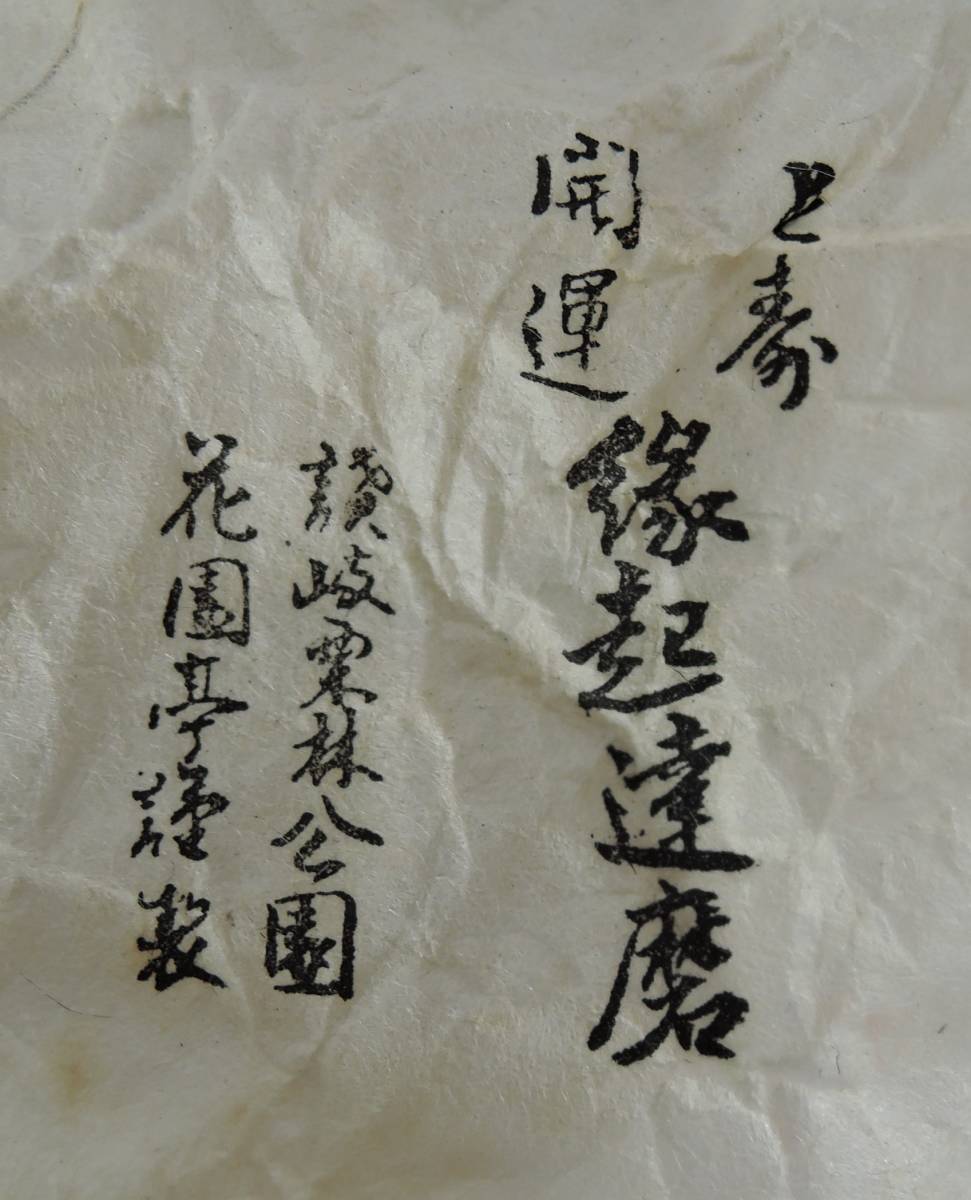 上寿
開運
縁起達磨
讃岐栗林公園
花園亭謹製